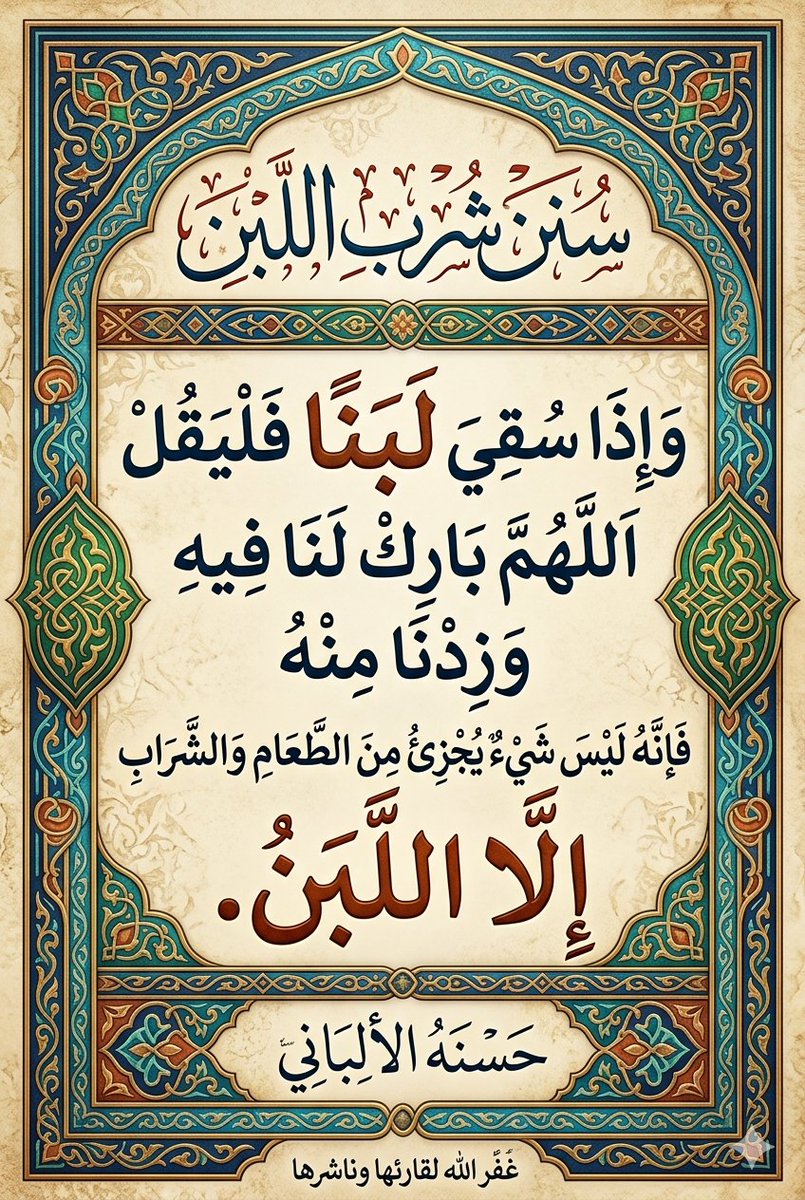 سُنَنَ شُرْبِ اللَّبْنِ
وَإِذَا سُقِيَ لَبَنًا فَلْيَقُلْ
اَللَّهُمَّ بَارِكْ لَنَا فِيهِ
وَزِدْنَا مِنْهُ
فَإِنَّهُ لَيْسَ شَيْءٌ يُجْزِئُ مِنَ الطَّعَامِ وَالشَّرَابِ
إِلَّا اللَّبَنُ.
حَسْنَهُ الألِبَانِي
غَفَّر الله لقارئها وناشرها